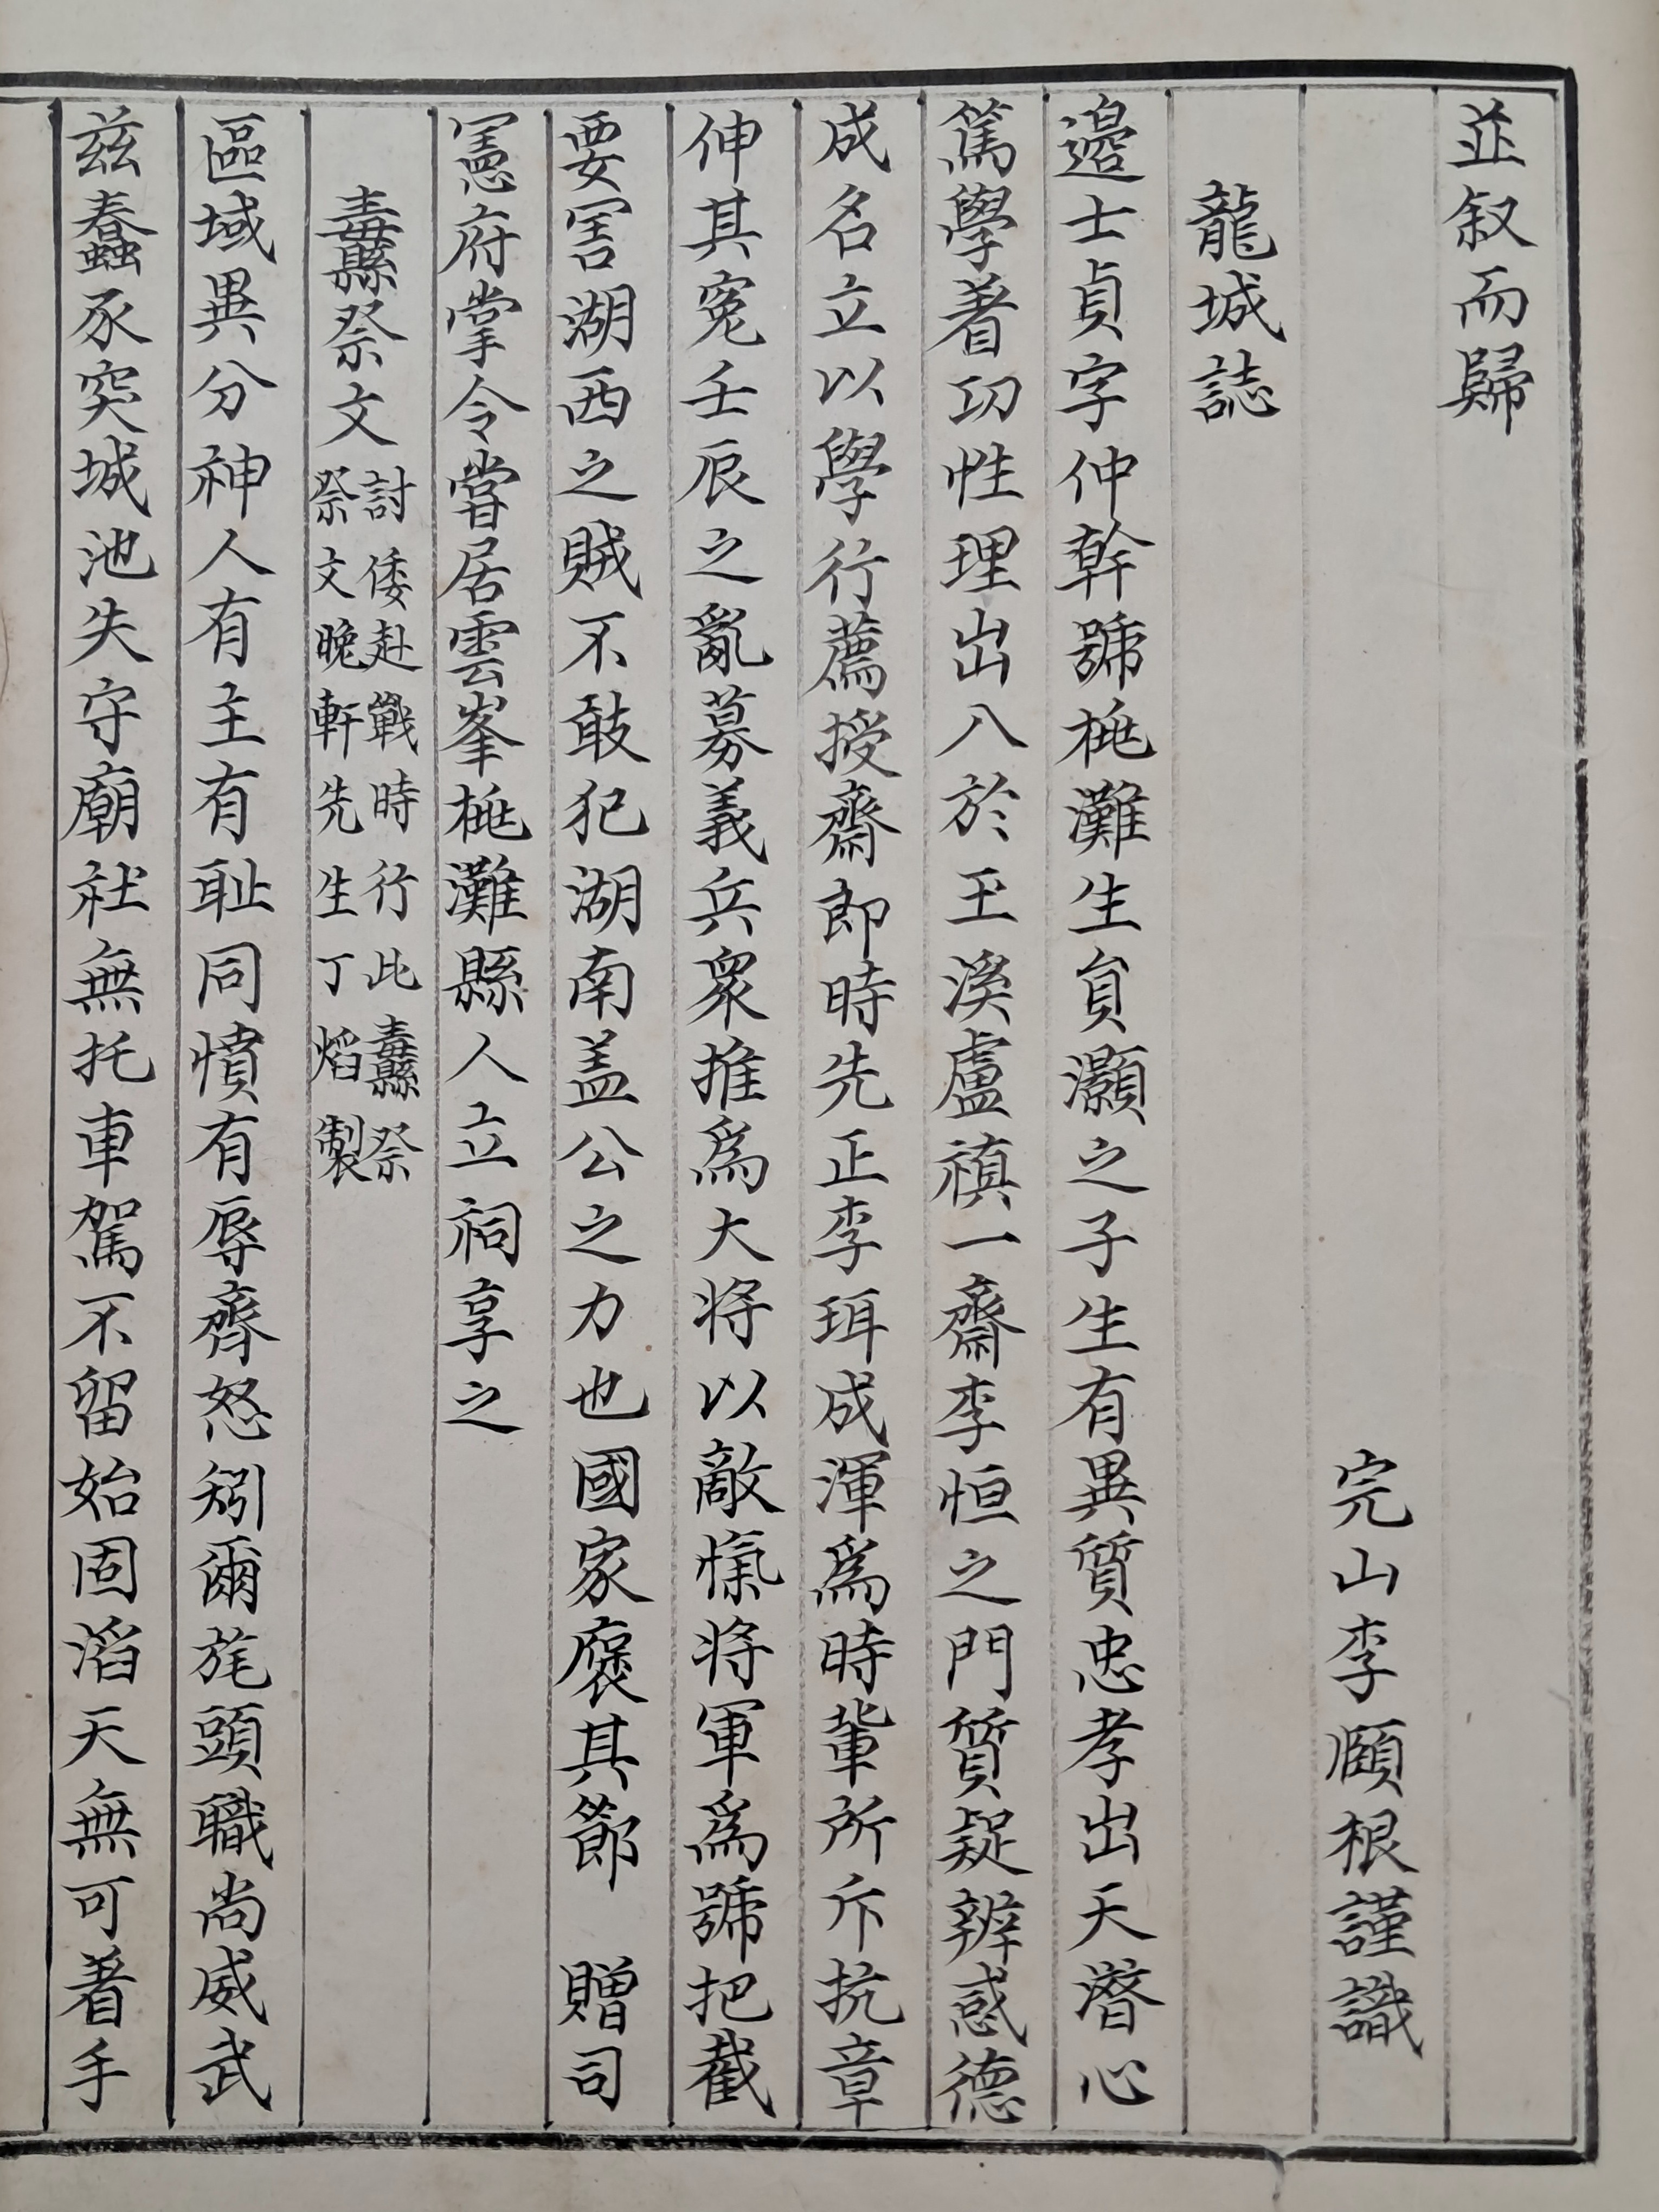 並叙而歸
完山李頤根謹識
龍城誌
邉士貞字仲幹號桃灘生負灝之子生有異質忠孝出天潛心
篤學着功性理出入於玉溪盧禛一齋李恒之門質疑辨惑德
成名立以學行薦授齋郎時先正李珥成渾爲時輩所斥抗章
伸其寃壬辰之亂募義兵衆推爲大將以敵愾將軍爲號把截
要害湖西之賊不敢犯湖南盖公之力也國家褒其節　贈司
憲府掌令嘗居雲峯桃灘縣人立祠享之
纛祭文 討倭赴戰時行此纛祭
祭文晚軒先生丁焰製
區域異分神人有主有耻同憤有辱齊怒矧爾旄頭職尚威武
玆蠢豕突城池失守廟社無托車駕不留始固滔天無可着手